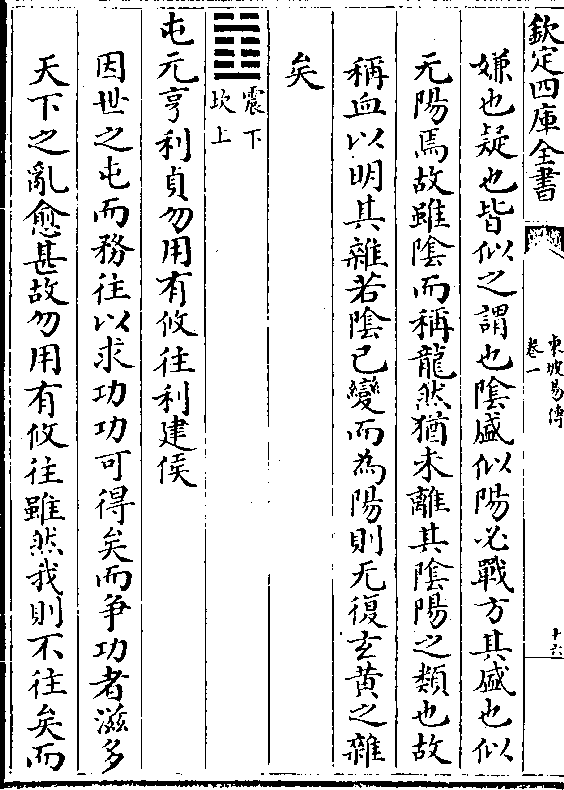 欽定四庫全書
東坡易傳
卷一
十六
嫌也疑也皆似之謂也陰盛似陽必戰方其盛也似
无陽焉故雖陰而稱龍然猶未離其陰陽之類也故
稱血以明其雜若陰已變而為陽則无復玄黄之雜
矣
震下
坎上
屯元亨利貞勿用有攸往利建侯
因世之屯而務往以求功功可得矣而争功者滋多
天下之亂愈甚故勿用有攸往雖然我則不往矣而